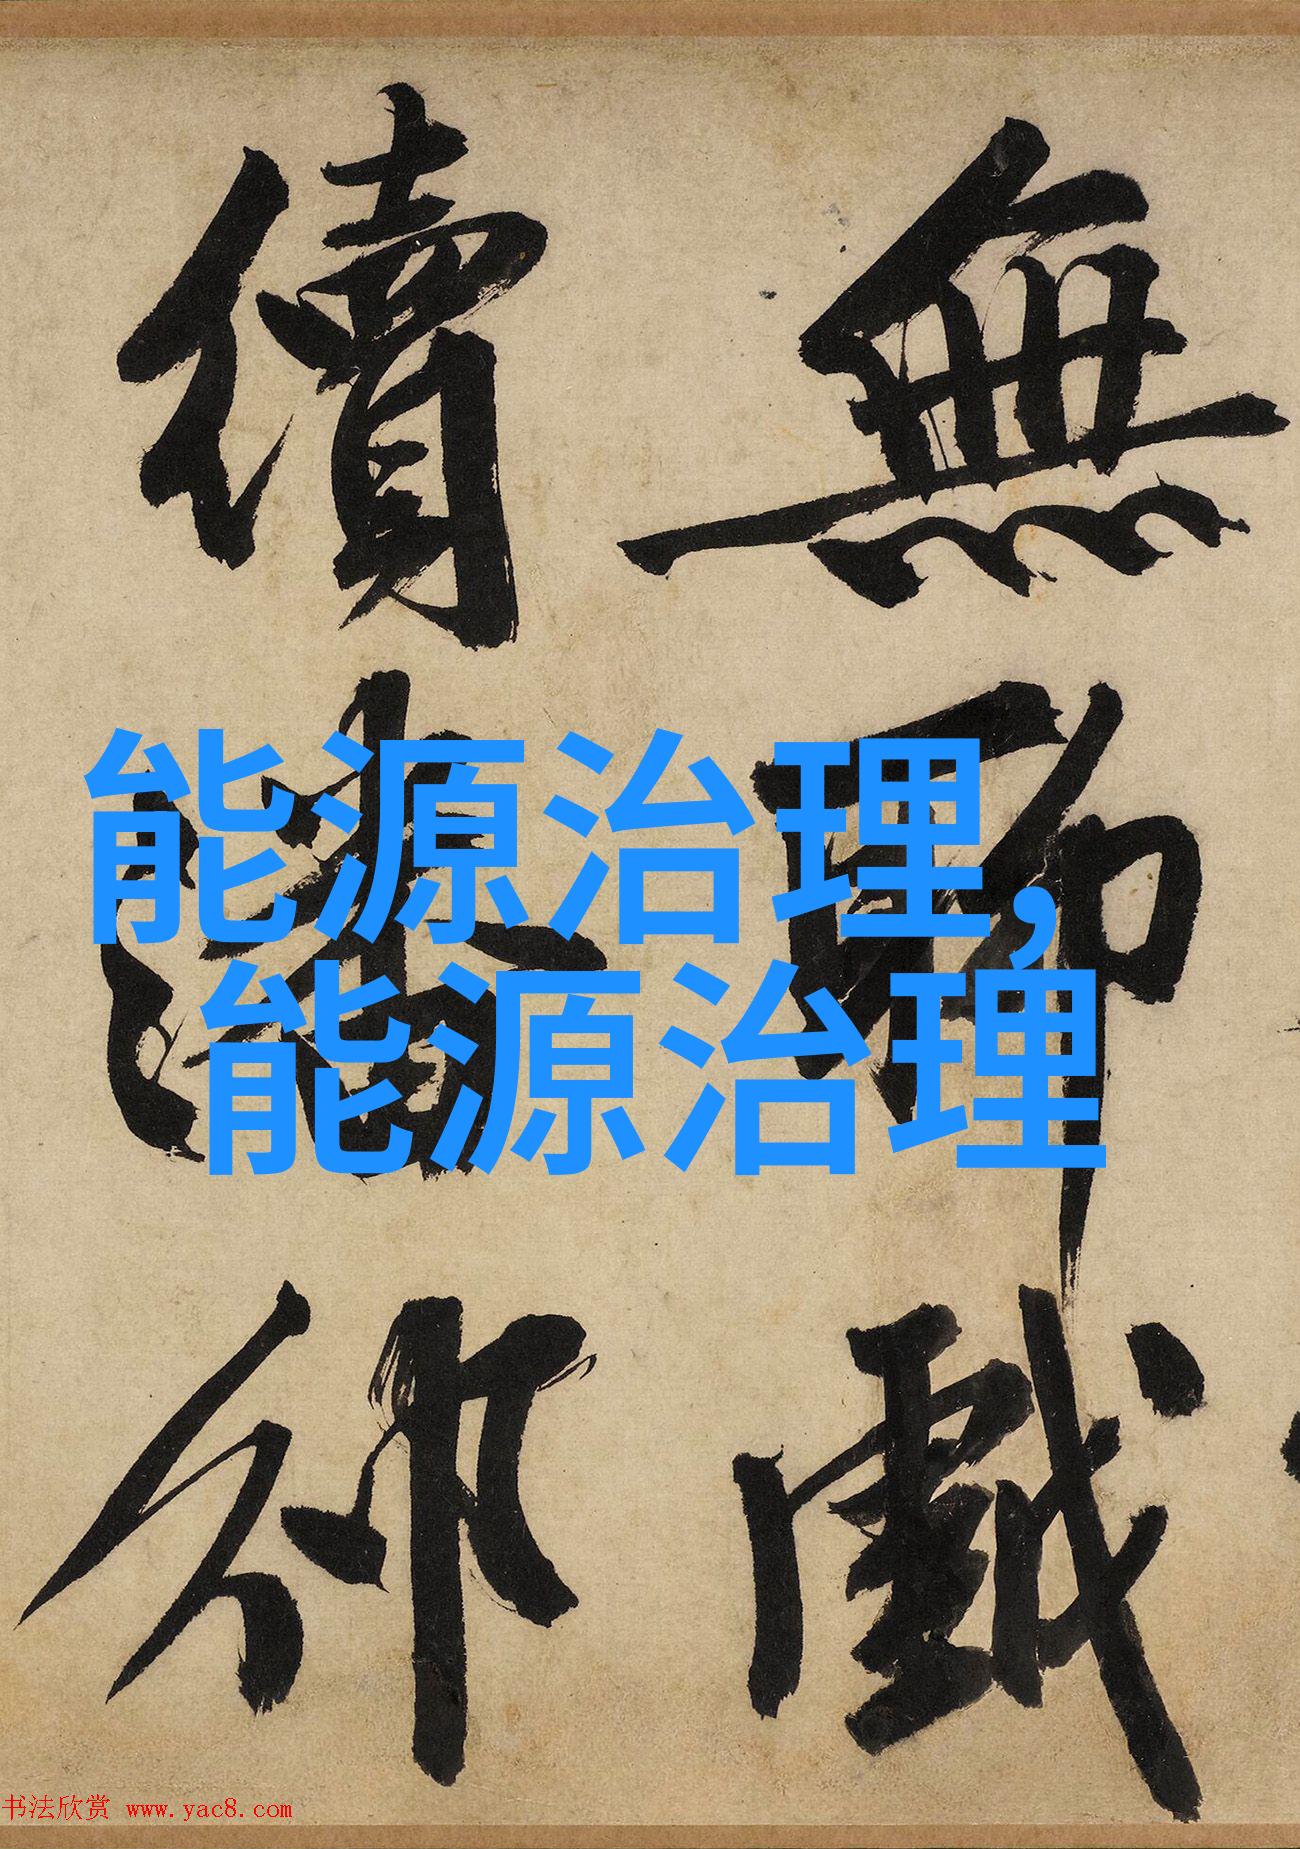 無聊戲
續潘邠
能源治理，
能源治理
书法欣赏 www.yac8.com